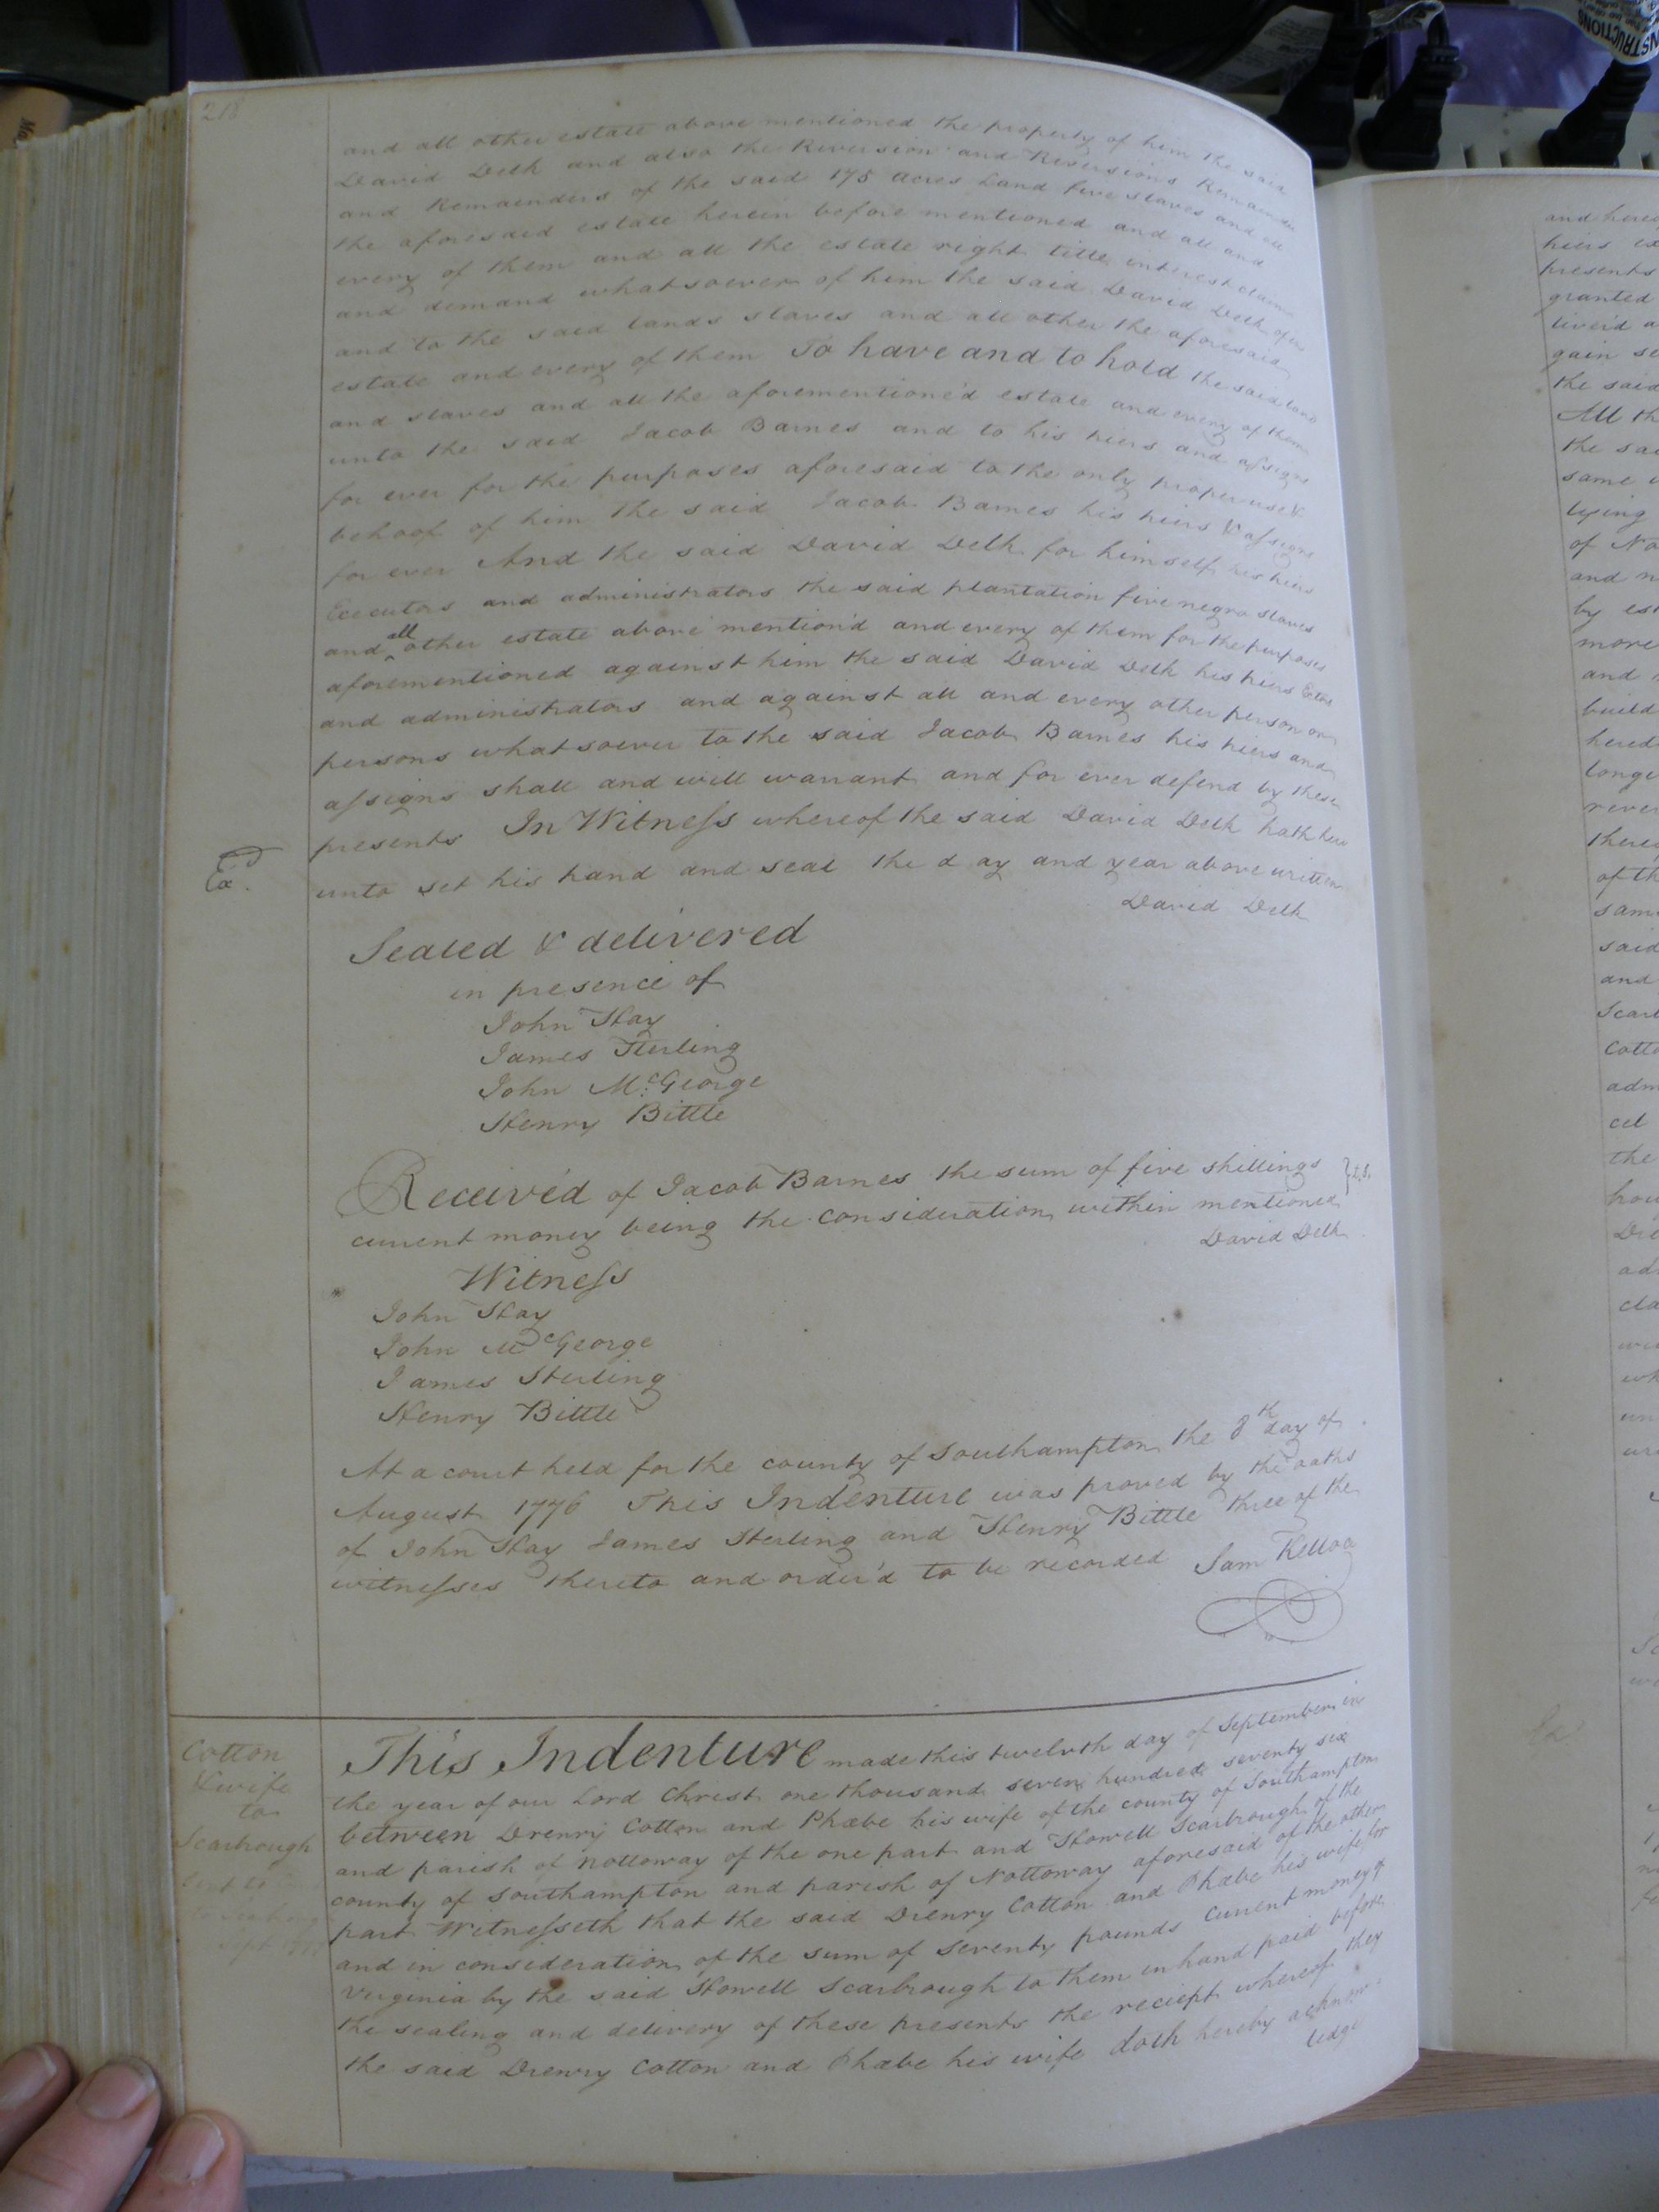 218
and all other estate above mentioned the property of him the said
David Delk and also the Reversion and Reversions Remainder
and Remainders of the said 175 acres Land five slaves and all
the aforesaid estate herein before mentioned and all and
every of them and all the estate right title interest claim
and demand whatsoever of him the said David Delk of in
and to the said lands slaves and all other the aforesaid
estate and every of them To have and to hold the said land
and slaves and all the aforementioned estate and every of them
unto the said Jacob Barnes and to his hiers and assigns
for ever for the purposes aforesaid to the only proper use &
behoof of him the said Jacob Barnes his hiers & assigns
for ever And the said David Delk for himself his hiers
Executors and administrators the said plantation five negro slaves
and all other estate above mention'd and every of them for the purposes
aforementioned against him the said David Delk his hiers Extors
and administrators and against all and every other person or
persons whatsoever to the said Jacob Barnes his hiers and
assigns shall and will warrant and for ever defend by these
presents In Witness whereof the said David Delk hath here
unto set his hand and seal the day and year above written
David Delk
Ex.d
Sealed & delivered
in presence of
John Hay
James Sterling
John McGeorge
Henry Bittle
Received of Jacob Barnes the sum of five shillings
current money being the consideration within mentioned
David Delk
Witness
John Hay
John McGeorge
James Sterling
Henry Bittle
At a court held for the county of Southampton the 8th day of
August 1776 This Indenture was proved by the oaths
of John Hay James Sterling and Henry Bittle three of the
witnesses thereto and order'd to be recorded Sam Kelloo
Cotton
& wife
to
Scarbrough
This Indenture made this twelvth day of September in
the year of our Lord Christ one thousand seven hundred seventy six
between Drenry Cotton and Phæbe his wife of the county of Southampton
and parish of Nottoway of the one part and Howell Scarbrough of the
county of Southampton and parish of Nottoway aforesaid of the other
part Witnesseth that the said Drenry Cotton and Phæbe his wife for
and in consideration of the sum of seventy pounds current money of
Virginia by the said Howell Scarbrough to them in hand paid before
the sealing and delivery of these presents the reciept whereof they
the said Drenry Cotton and Phæbe his wife doth hereby acknow-
ledge
and here
hiers ex
presents
granted
gain se
the said
All th
the sai
same
lying
of No
and
by est
more
and
build
hered
longe
rever
there
of th
same
said
and
Scarb
Cotto
adm
cel
the